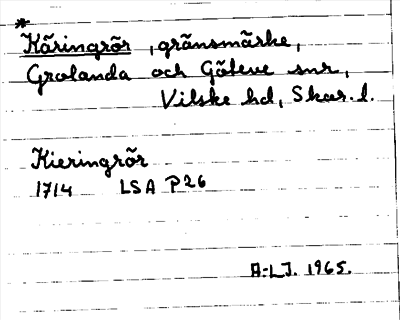 *
Käringrör, gränsmärke,
Grolanda och Göteve snr,
Vilske hd, Skar. l.
Kieringrör
1714 LSA P26
A-LJ. 1965.